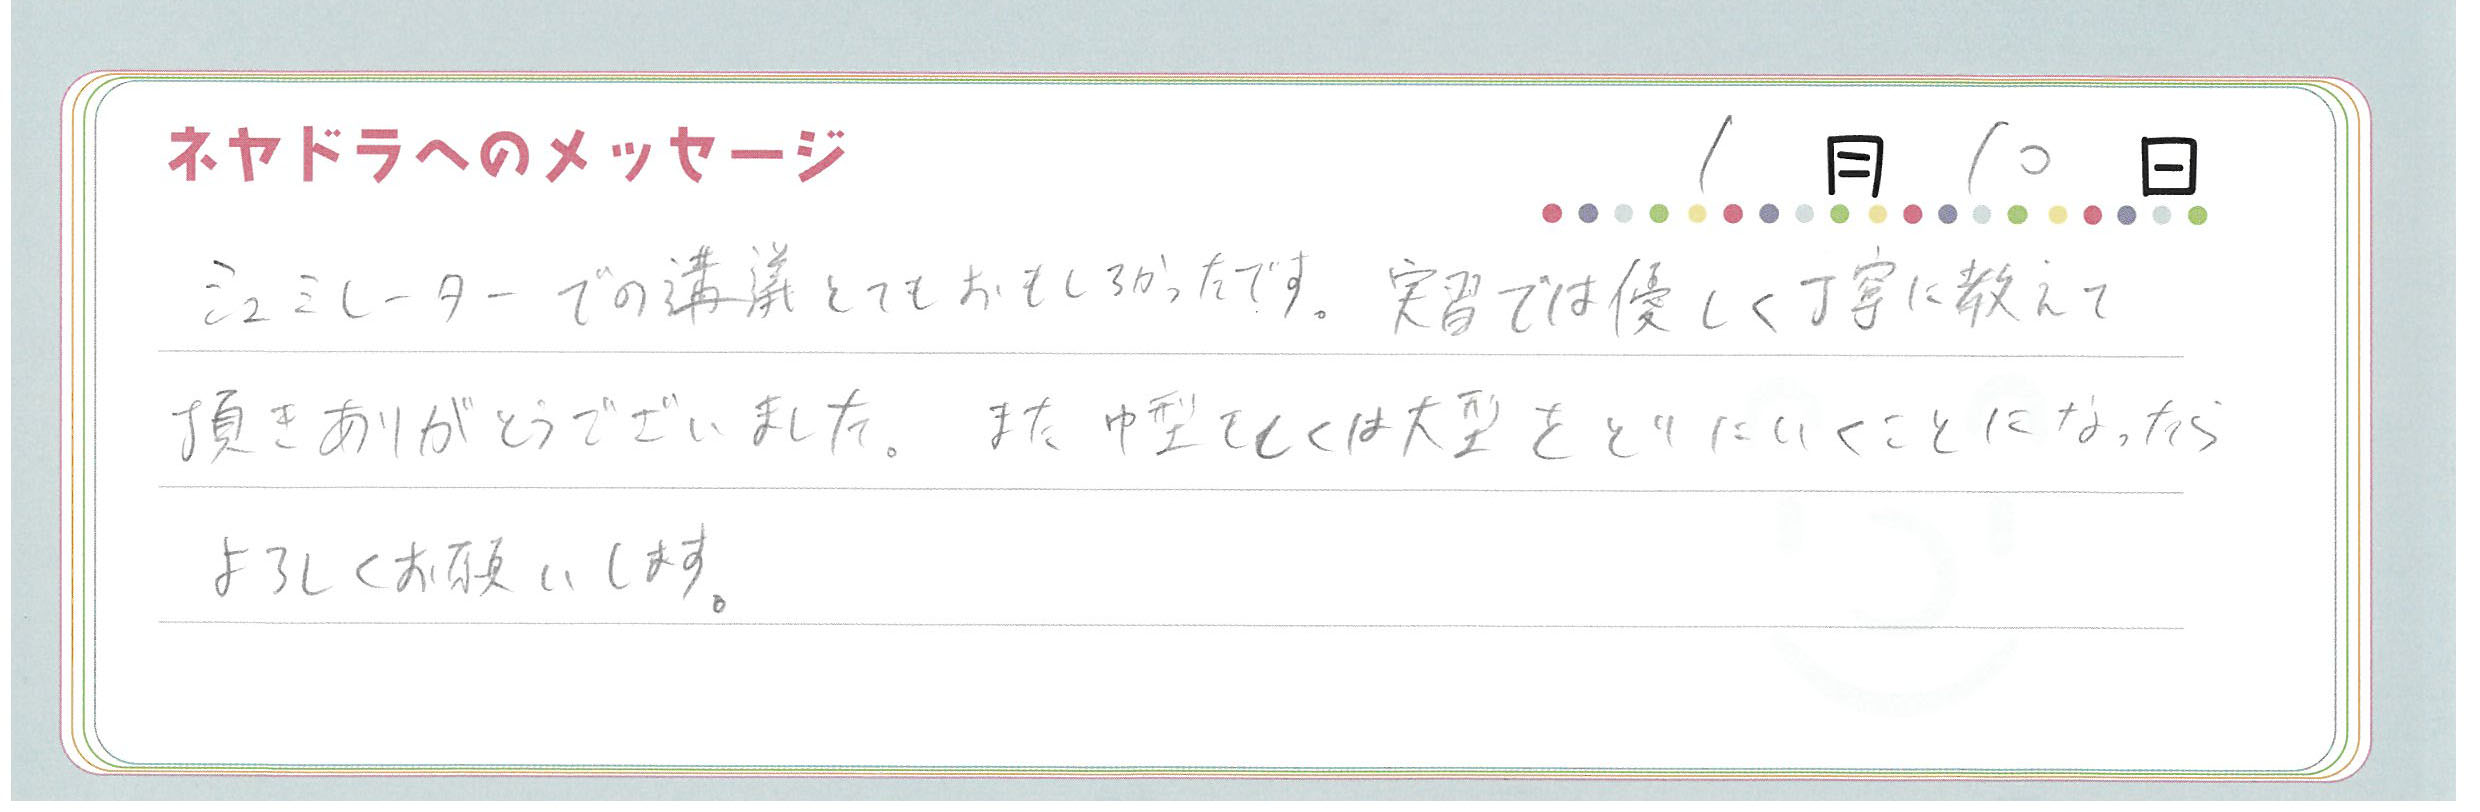 ネヤドラへのメッセージ
1月10日
シュミレーターでの講義とてもおもしろかったです。実習では優しく丁寧に教えて
頂きありがとうございました。また中型もしくは大型をとりにいくことになったら
よろしくお願いします。